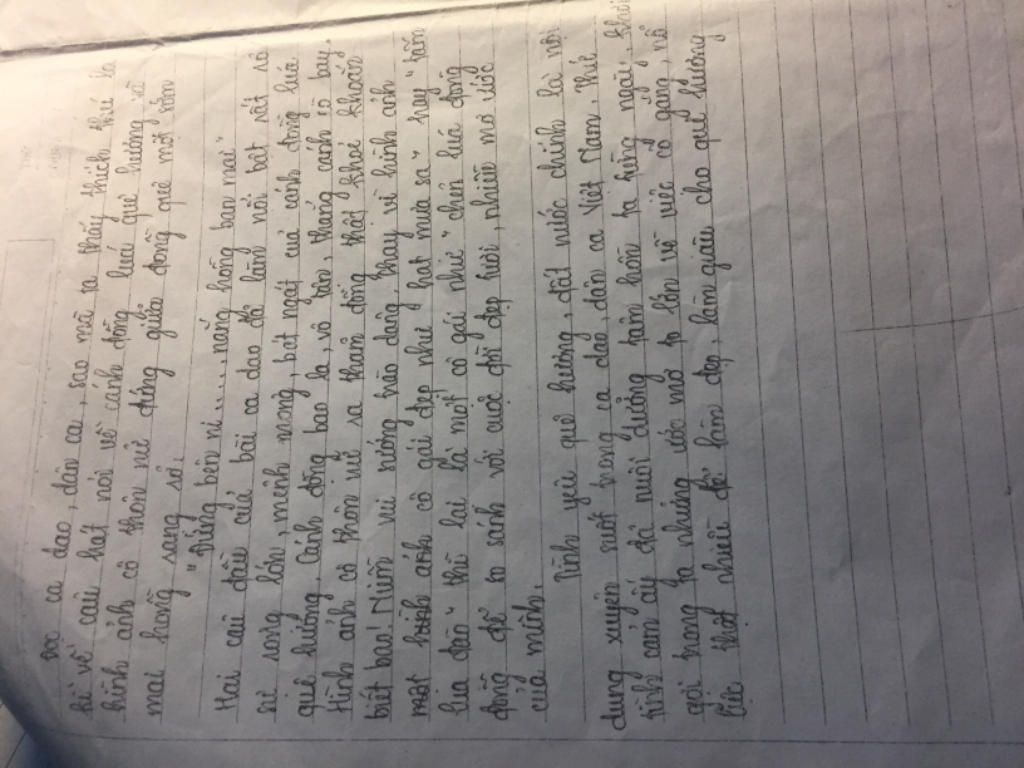 Đọc ca dao, dân ca, sao mà ta thấy thích thú la
kì về câu hát nói về cánh đồng lúa quê hương và
hình ảnh cô thôn nữ đứng giữa đồng quê một sớm
mai hồng sáng sớ:
"Đứng bên ni.....nắng hồng ban mai"
Hai câu đầu của bài ca dao đã làm nổi bật rất rõ
sự rộng lớn, mênh mông, bát ngát của cánh đồng lúa
quê hương. Cánh đồng bao la, vô tận, thẳng cánh cò bay.
Hình ảnh cô thôn nữ ra thăm đồng thật khoẻ khoắn
biết bao! Niềm vui sướng trào dâng thay vì hình ảnh
một cô gái đẹp như "hạt mưa sa" hay "tấm
lụa đào" thì lại là một cô gái như "chẽn lúa đòng
đòng" để so sánh với cuộc đời đẹp tươi, nhiều mơ ước
của mình.
Tình yêu quê hương, đất nước chính là nội
dung xuyên suốt trong ca dao, dân ca Việt Nam. Thứ
tình cảm ấy đã nuôi dưỡng tâm hồn ta từng ngày, khơi
gợi trong ta những ước mơ to lớn về việc cố gắng, nỗ
lực thật nhiều để làm đẹp, làm giàu cho quê hương